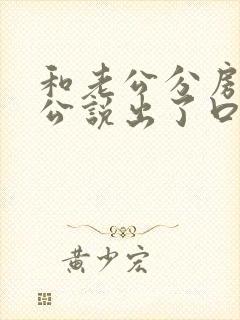 和老公分房
公說出了口
黃少宏